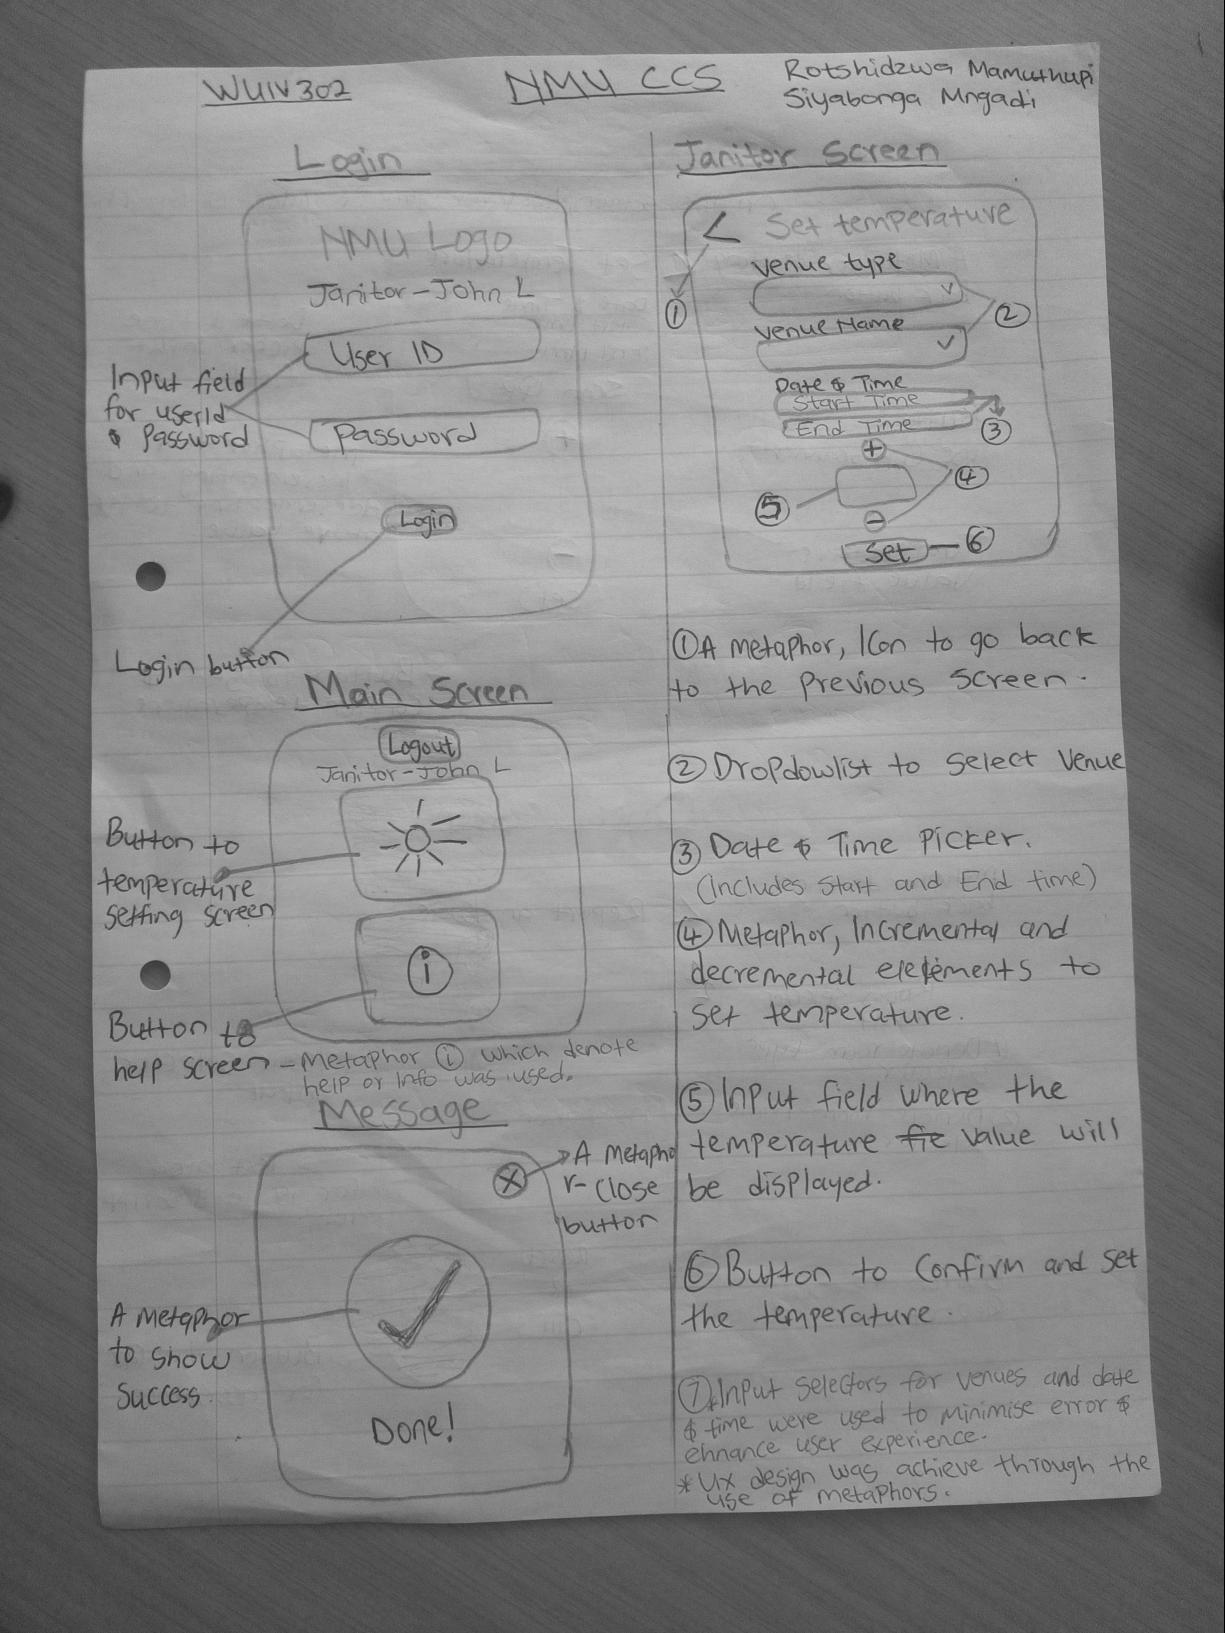 WUIV302
NMU CCS
Rotshidzwa Mamuthupi
Siyabonga Mngadi
Login
NMU Logo
Janitor-John L
User ID
Password
Login
Input field
for userId
& Password
Login button
Main Screen
Logout
Janitor-John L
Button to
temperature
setting screen
i
Button to
help screen - Metaphor i which denote
help or info was used.
Message
X
A metapho
r-close
button
A metaphor
to show
success.
Done!
Janitor Screen
< Set temperature
Venue type
Venue Name
Date & Time
Start Time
End Time
+
-
Set
1
2
3
4
5
6
① A metaphor, Icon to go back
to the previous screen.
② Dropdowlist to select Venue
③ Date & Time Picker.
(Includes Start and End time)
④ Metaphor, Incremental and
decremental elements to
set temperature.
⑤ Input field where the
temperature fie value will
be displayed.
⑥ Button to confirm and set
the temperature.
⑦ Input selectors for venues and date
& time were used to minimise error &
ehnance user experience.
* UX design was achieve through the
use of metaphors.